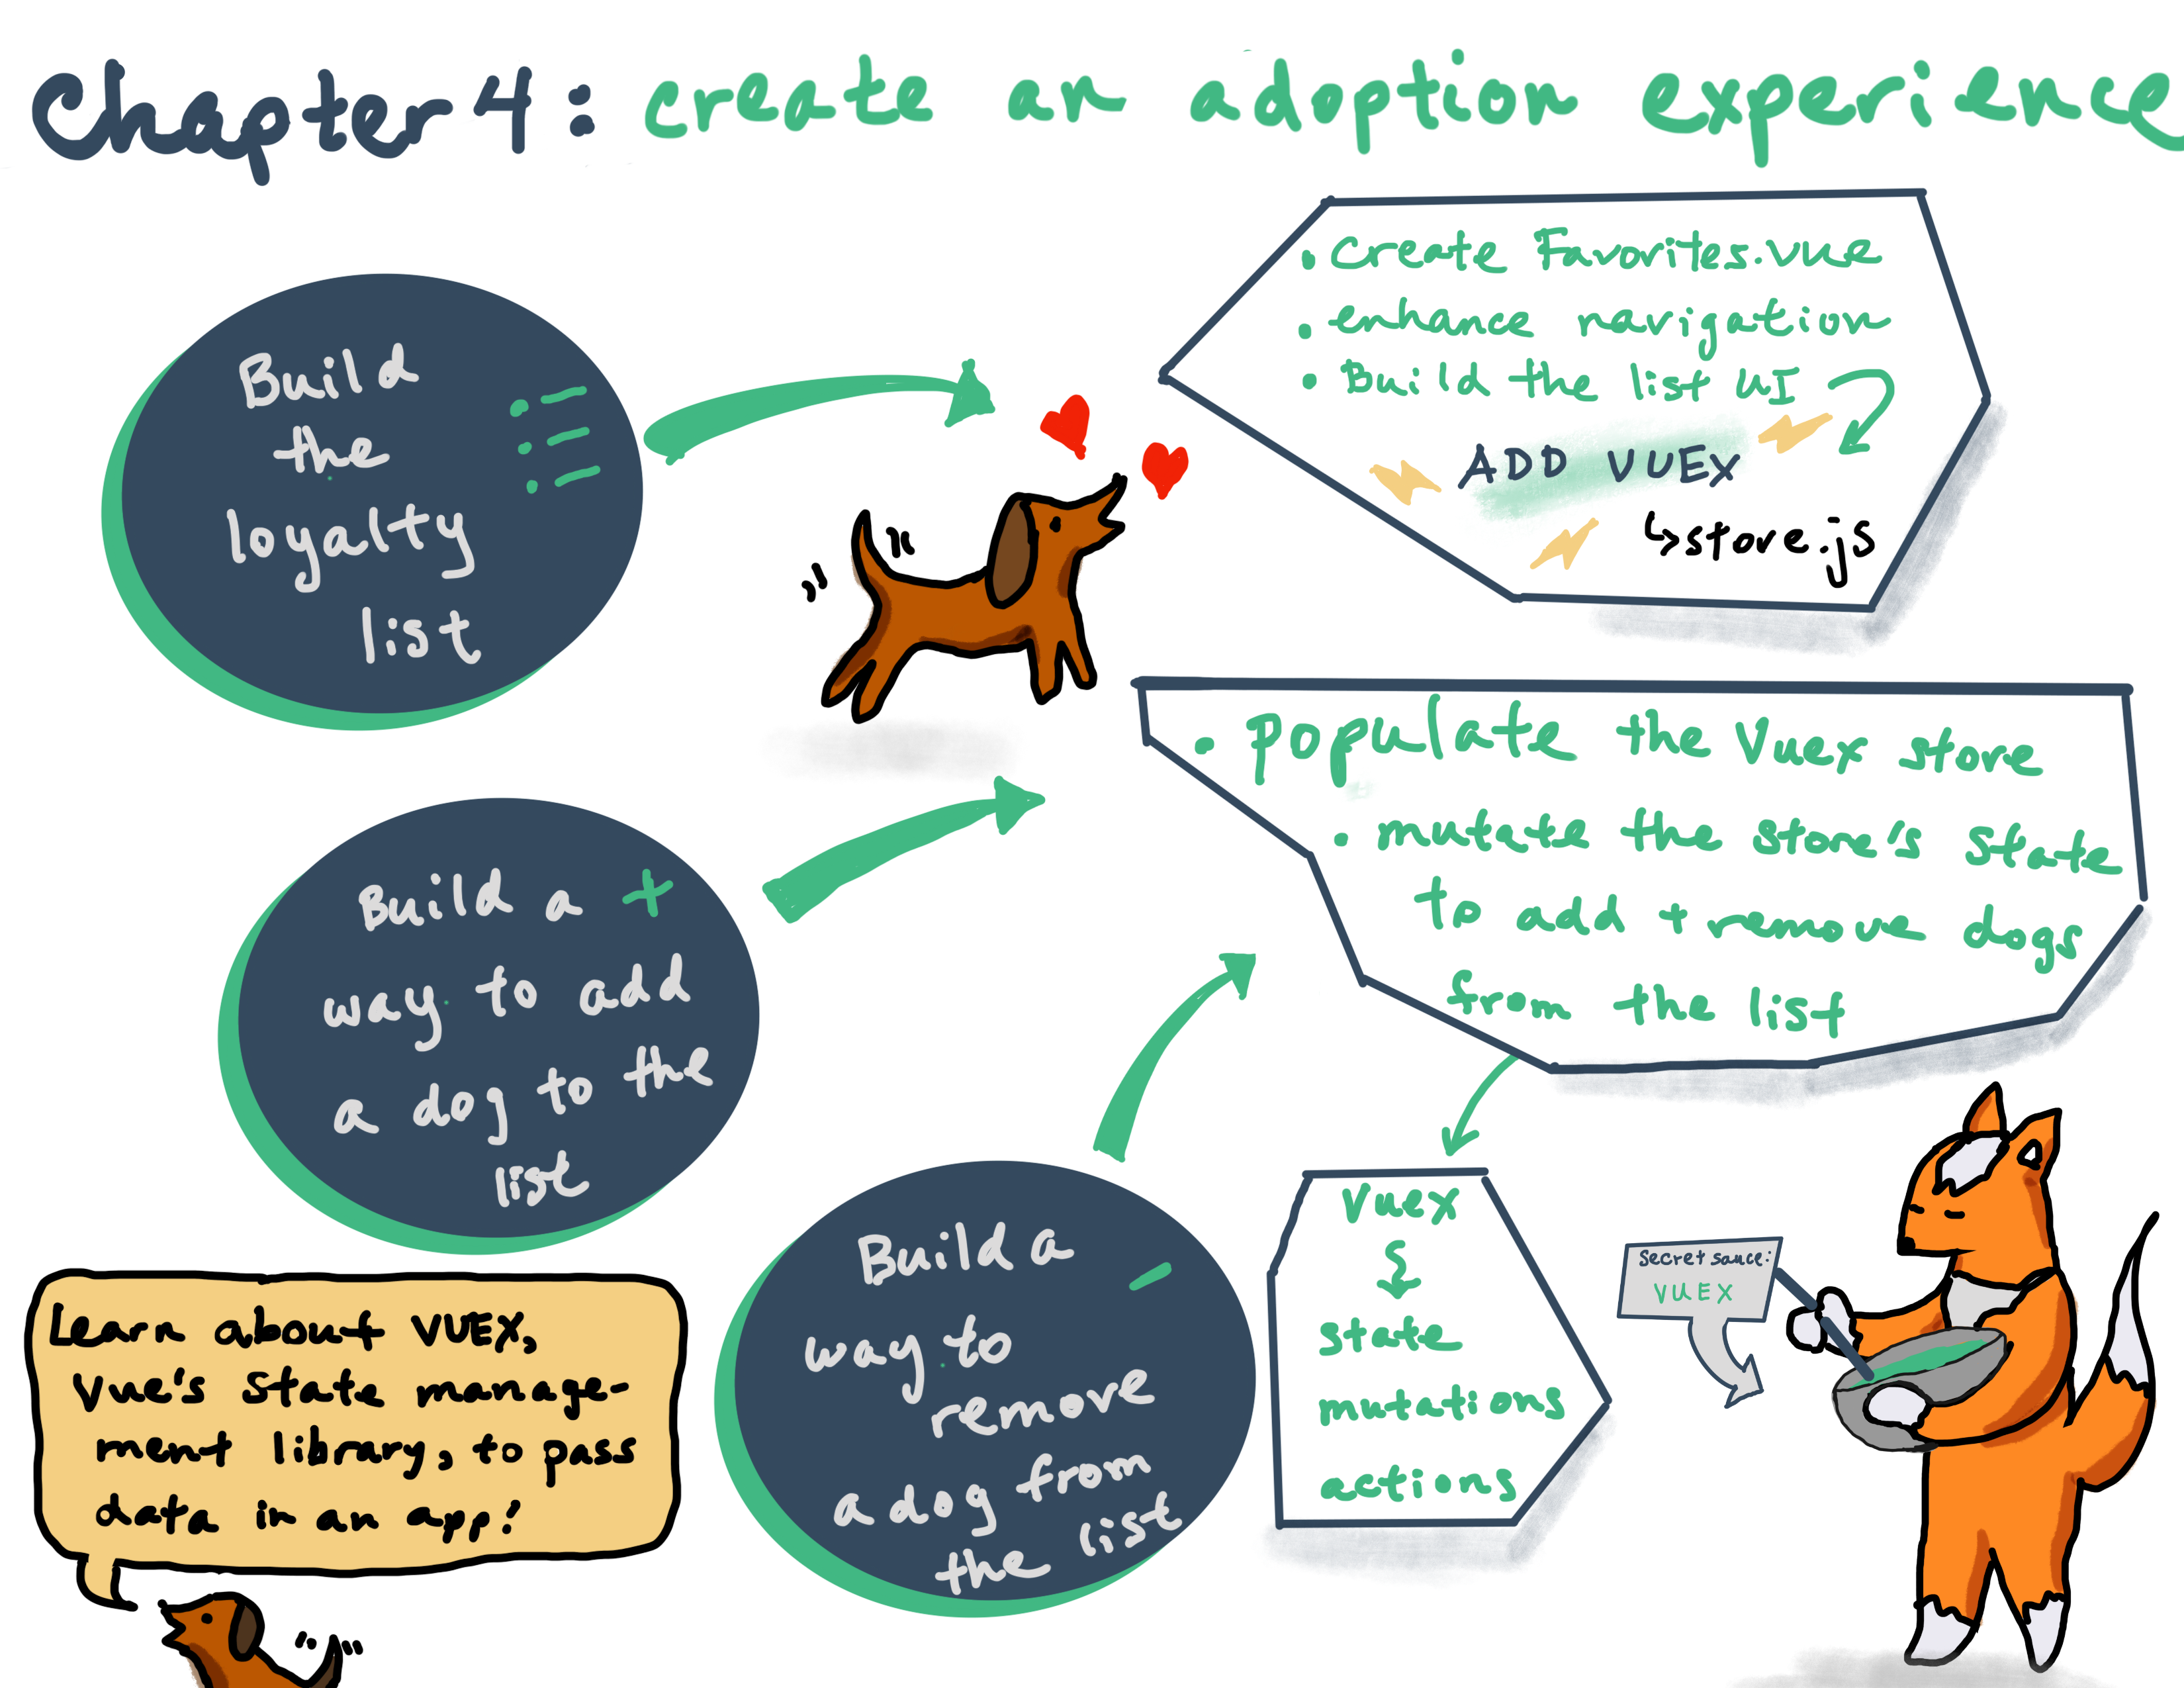 Chapter 4: create an adoption experience
Build
the
loyalty
list
• Create Favorites.vue
• enhance navigation
• Build the list UI
ADD VUEX
↳store.js
Build a +
way to add
a dog to the
list
• Populate the Vuex store
• mutate the store's state
to add + remove dogs
from the list
Build a -
way to
remove
a dog from
the list
Vuex
state
mutations
actions
Secret sauce:
VUEX
Learn about VUEX,
Vue's state manage-
ment library, to pass
data in an app!